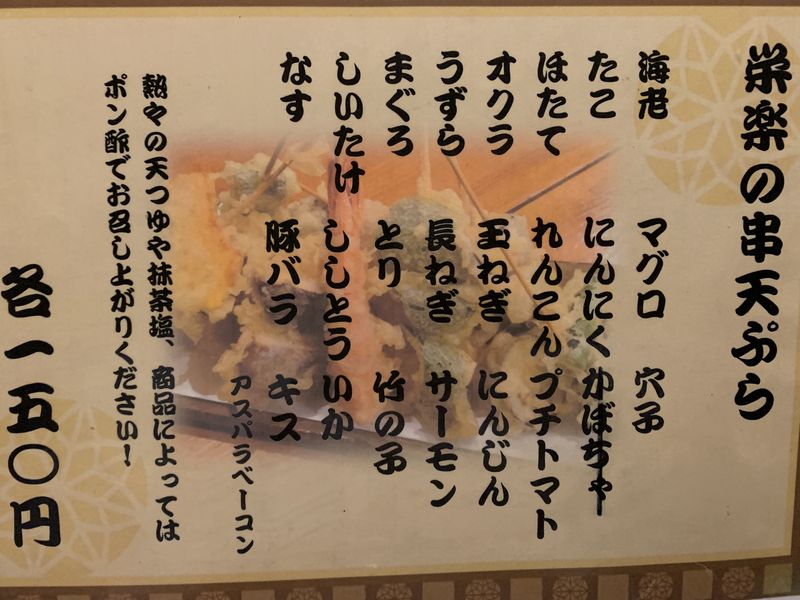 栄楽の串天ぷら
海老 マグロ 穴子
たこ にんにく かぼちゃ
ほたて れんこん プチトマト
オクラ 玉ねぎ にんじん
うずら 長ねぎ サーモン
まぐろ とり 竹の子
しいたけ ししとう いか
なす 豚バラ キス
アスパラベーコン
熱々の天つゆや抹茶塩、商品によっては
ポン酢でお召し上がりください！
各一五〇円